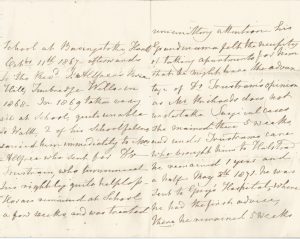 School at Basingstoke, Hants
Octr. 11th 1867 afterwards
to the Revd
Tunbridge Wells in
1868. In 1869 taken very
ill at School, quite unable
to Walk. 2 of his School fellows
carried him immediately to Mr
who sent for Dr
Trustram, who pronounced
him rightly, quite helpless
Horace remained at School
a few weeks and was treated
unremitting attention. His
Grandmamma felt the necessity
of taking apartments for him
that he might have the advan-
tage of Dr Trustram's opinion
as Mr Richards does not
undertake Surgical cases
She remained there 5 weeks
and under Trustram's care
who brought him to
he remained 1 year and
a half. May 5th 1871. he was
sent to George's Hospital, where
he had the first advice,
there he remained 5 weeks